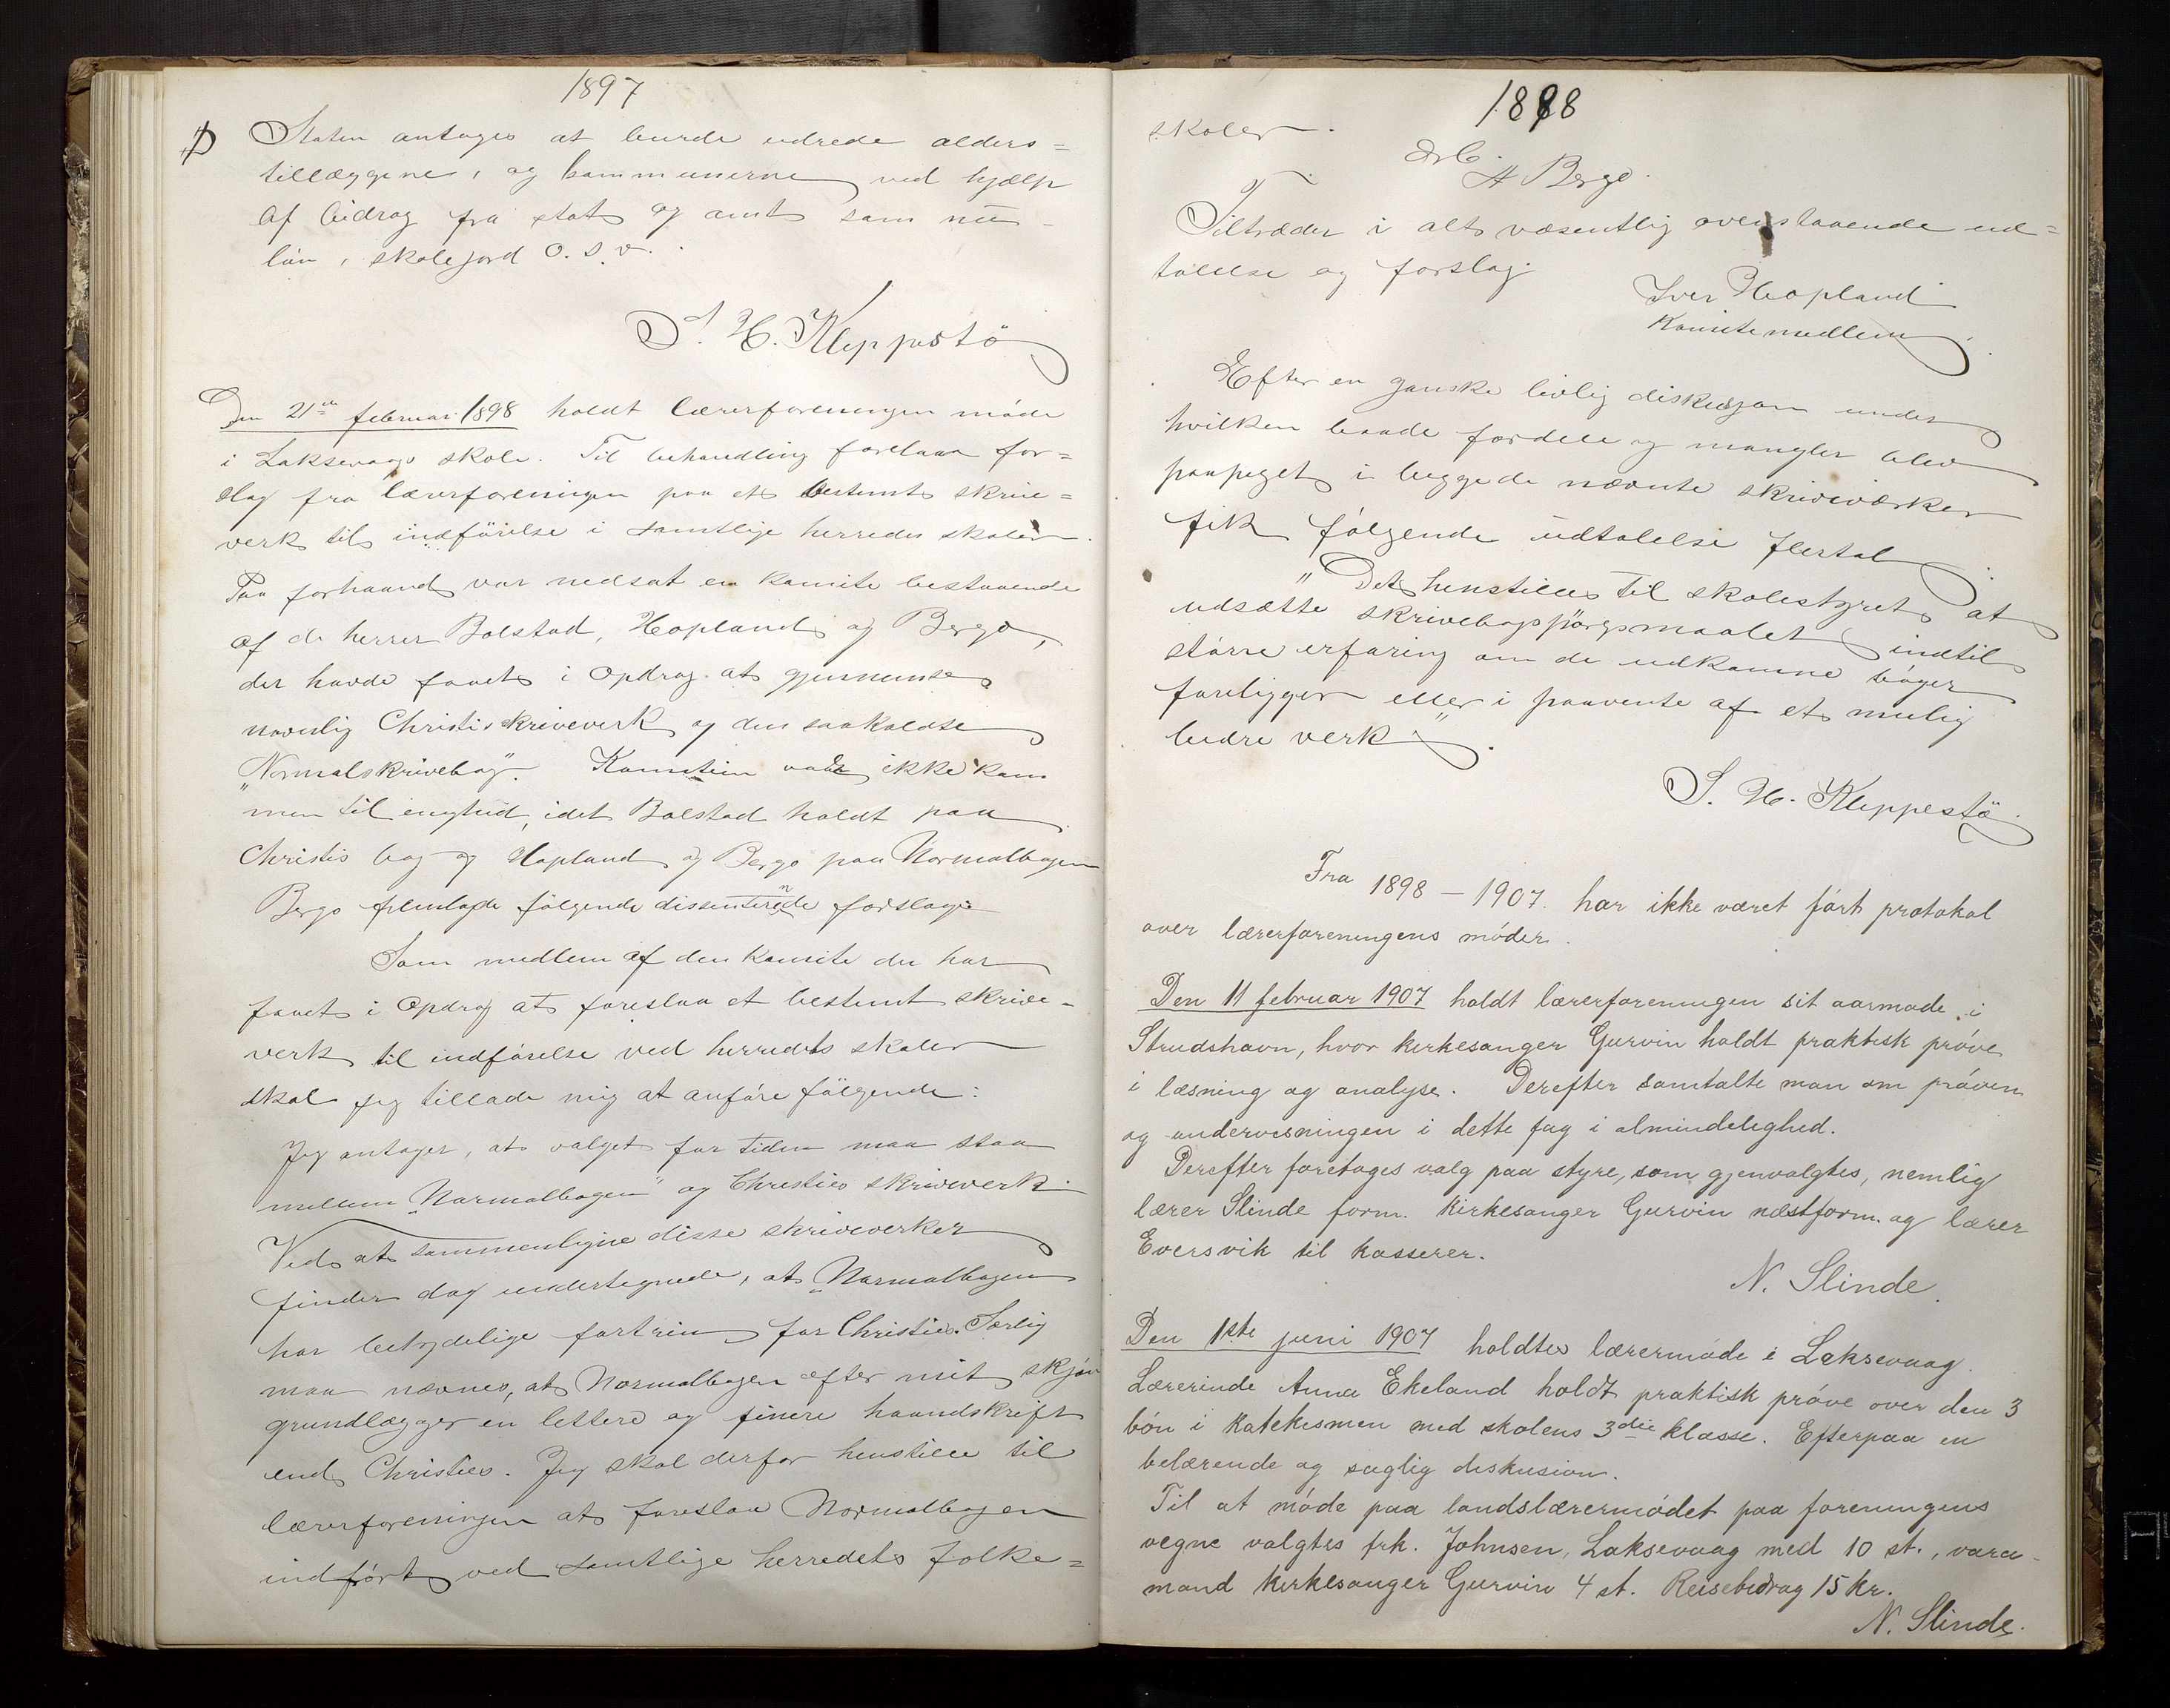 1897
Staten antages at burde udrede alders=
tillæggene, og kommunerne ved hjælp
af bidrag fra stat og amt som nu
løn, skolejord o. s. v.
S. H. Kleppestö
Den 21de februar 1898 holdt lærerforeningen möde
i Laksevaags skole. Til behandling forelaa for=
slag fra lærerforeningen paa et bestemt skrive=
verk til indförelse i samtlige herredes skoler.
Paa forhaand var nedsat en komite bestaaende
af de herrer Bolstad, Hopland og Bergo,
der havde faaet i opdrag at gjennemse
navnlig Christis skriveverk og den saakaldte
"Normalskrivebog". Komiteen var ikke kom
men til enighed, idet Bolstad holdt paa
Christis bog og Hopland og Bergo paa Normalbogen
Bergo fremlagde følgende dissenterende forslag
Som medlem af den komite der har
faaet i opdrag at foreslaa et bestemt skrive-
verk til indförelse ved herredets skoler
skal jeg tillade mig at anföre fölgende:
Jeg antager, at valget for tiden maa staa
mellem "Normalbogen" og Christies skriveverk.
Ved at sammenligne disse skriveverker
finder dog undertegnede, at "Normalbogen
har betydelige fortrin for Christies. Særlig
maa nævnes, at Normalbogen efter mit skjøn
grundlægger en lettere og finere haandskrift
end Christies. Jeg skal derfor henstille til
lærerforeningen at foreslaa Normalbogen
indfört ved samtlige herredets folke=
1898
skoler.
Ærb.
A Bergo.
Tiltræder i alt væsentlig ovenstaaende ud=
talelse og forslag.
Iver Hopland
Komitemedlem
Efter en ganske livlig diskusjon under
hvilken baade fordele og mangler blev
paapeget i begge de nævnte skriveværker
fik følgende udtalelse flertal:
"Det henstilles til skolestyret at
udsætte skrivebogspörgsmaalet indtil
större erfaring om de udkomne böger
foreligger eller i paavente af et mulig
bedre verk".
S. H. Kleppestö.
Fra 1898 - 1907. har ikke været ført protokol
over lærerforeningens møder.
Den 11 februar 1907 holdt lærerforeningen sit aarmøde i
Strudshavn, hvor kirkesanger Gurvin holdt praktisk prøve
i læsning og analyse. Derefter samtalte man om prøven
og undervisningen i dette fag i almindelighed.
Derefter foretoges valg paa styre, som gjenvalgtes, nemlig
lærer Slinde form. kirkesanger Gurvin næstform. og lærer
Eversvik til kasserer.
N. Slinde.
Den 1ste juni 1907 holdtes lærermøde i Laksevaag.
Lærerinde Anna Ekeland holdt praktisk prøve over den 3
bøn i katekismen med skolens 3die klasse. Efterpaa en
belærende og saglig diskusion.
Til at møde paa landslærermødet paa foreningens
vegne valgtes frk. Johnsen, Laksevaag med 10 st., vara-
mand kirkesanger Gurvin 4 st. Reisebidrag 15 kr.
N. Slinde.